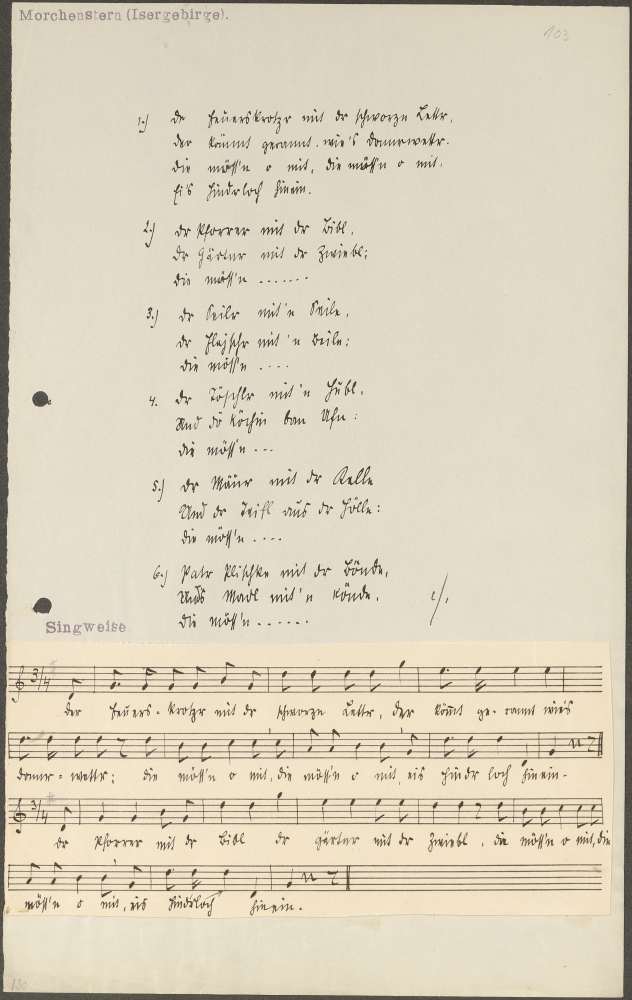 Morchenstern (Isergebirge).
103
1.) Dr Feuerskrotzr mit dr schworzn Lettr,
der kömmt gerannt wie's Donnrwettr.
die möss'n o mit, die möss'n o mit,
Ei's Hindrloch hinein.
2.) Dr Pforrer mit dr Bibl,
Dr Gärtnr mit dr Zwiebl;
die möss'n .......
3.) Dr Seilr mit'n Seile,
dr Flejschr mit'n Beile:
die möss'n ....
4. Dr Töschlr mit'n Hubl,
Und dö Köchin ban Ufn:
die möss'n ...
5.) Dr Mäur mit dr Kelle
Und dr Teifl aus dr Hölle:
die möss'n ....
6.) Patr Plischke mit dr Bönde,
Und's Madl mit'n Könde,
die möss'n ......
Singweise
3/4
der Feuers-krotzr mit dr schworzn Lettr, der kömt ge-rannt wie's
donnr-wettr; die möss'n o mit, die möss'n o mit, eis Hindr loch hinein.
3/4
dr Pforrer mit dr Bibl dr Gärtnr mit dr Zwiebl, die möss'n o mit, die
möss'n o mit, eis Hindrloch hinein.
130